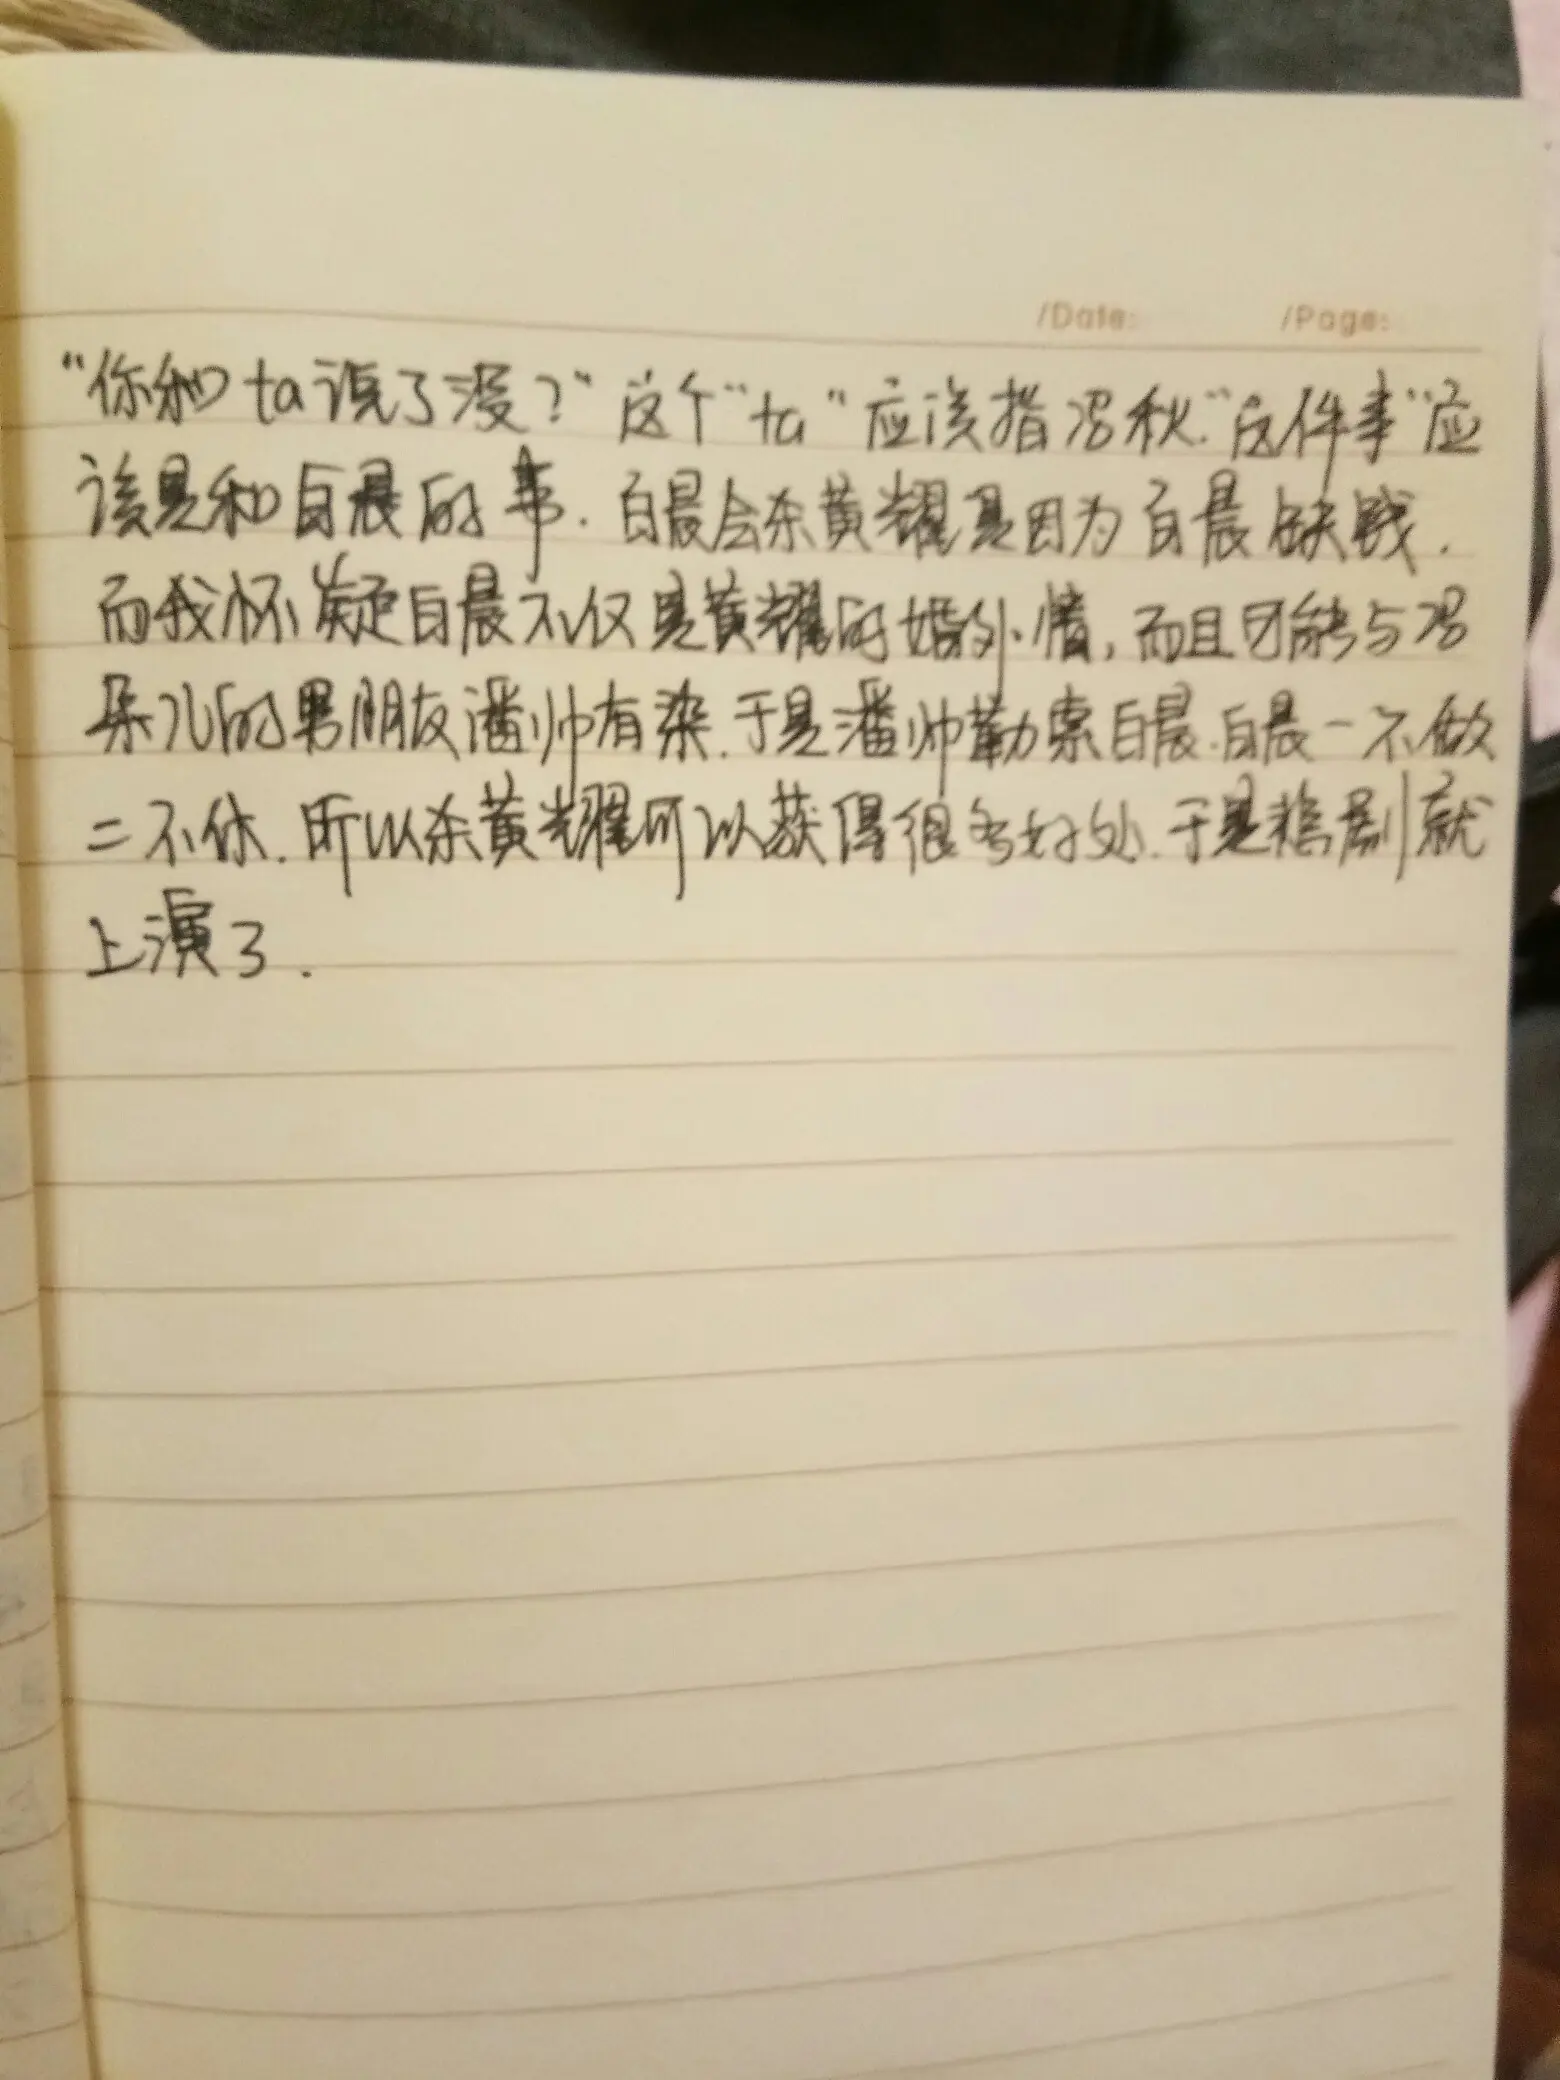 /Date: /Page:
"你和ta说了没？"这个"ta"应该指沼秋."这件事"应
该是和白晨的事.白晨会杀黄耀是因为白晨缺钱.
而我怀疑白晨不仅是黄耀的婚外情,而且可能与沼
朵儿的男朋友潘帅有染.于是潘帅勒索白晨.白晨一不做
二不休.所以杀黄耀可以获得很多好处.于是惨剧就
上演了.